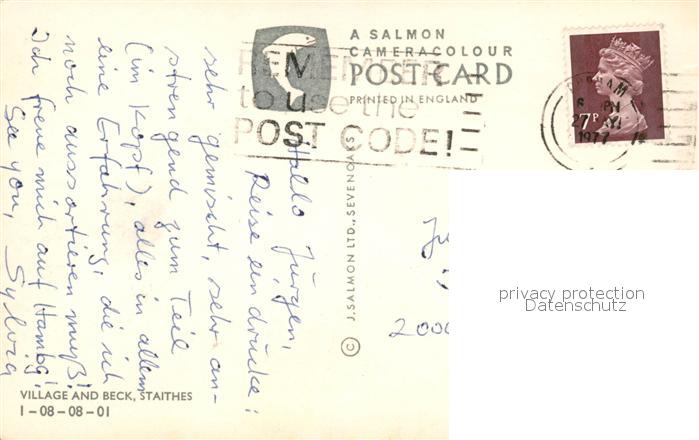 A SALMON
CAMERACOLOUR
POSTCARD
PRINTED IN ENGLAND
REMEMBER
to use the
POST CODE!
7P
1977
Hallo Jürgen,
Reiseeindrücke:
sehr gemischt, sehr an-
strengend zum Teil
(im Kopf), alles in allem
eine Erfahrung, die ich
noch aussortieren muß!
Ich freue mich auf Hambg!
See you, Sylvia
© J. SALMON LTD., SEVENOAKS
Jü
2000
privacy protection
Datenschutz
VILLAGE AND BECK, STAITHES
1-08-08-01